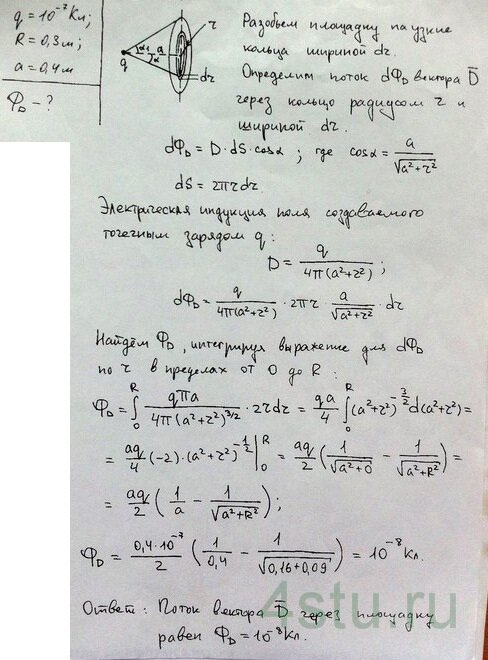 q = 10⁻⁷ Кл;
R = 0,3 м;
a = 0,4 м
Φ_D – ?
q α a
α
r
dr
Разобьем площадку на узкие
кольца шириной dr.
Определим поток dΦ_D вектора D̅
через кольцо радиусом r и
шириной dr.
dΦ_D = D · dS · cosα ; где cosα = a/√(a²+r²)
dS = 2πrdr
Электрическая индукция поля создаваемого
точечным зарядом q :
D = q/(4π(a²+r²)) ;
dΦ_D = q/(4π(a²+r²)) · 2πr · a/√(a²+r²) · dr
Найдём Φ_D, интегрируя выражение для dΦ_D
по r в пределах от 0 до R :
Φ_D = ∫₀ᴿ qπa/(4π(a²+r²)^(3/2)) · 2rdr = qa/4 ∫₀ᴿ (a²+r²)^(-3/2) d(a²+r²) =
= aq/4 (-2)·(a²+r²)^(-1/2) |₀ᴿ = aq/2 (1/√(a²+0) - 1/√(a²+R²)) =
= aq/2 (1/a - 1/√(a²+R²)) ;
Φ_D = 0,4·10⁻⁷/2 (1/0,4 - 1/√(0,16+0,09)) = 10⁻⁸ Кл.
Ответ: Поток вектора D̅ через площадку
равен Φ_D = 10⁻⁸ Кл.
4stu.ru